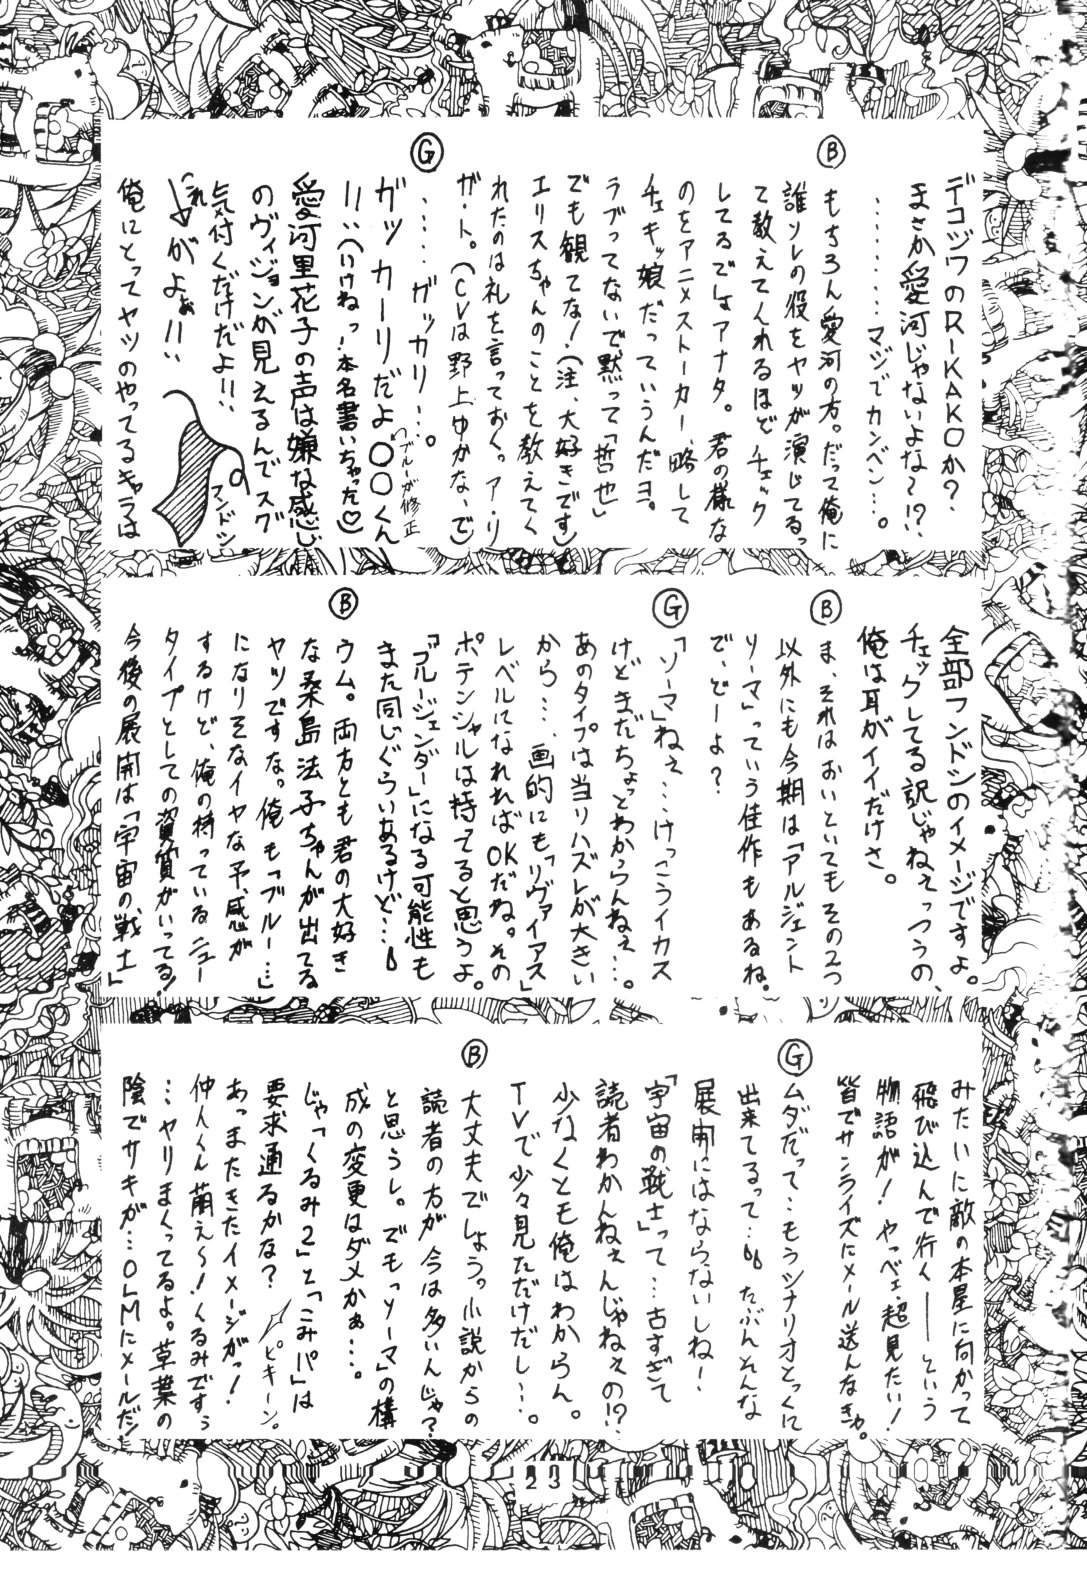 デコジワのRIKAKOか?
まさか愛河じゃないよな〜!?
………マジでカンベン…。
Ⓑ
もちろん愛河の方。だって俺に
誰ソレの役をヤツが演じてるっ
て教えてくれるほどチェック
してるでしょアナタ。君の様な
のをアニメストーカー、略して
チェキッ娘だっていうんだヨ。
ラブってないで黙って「哲也」
でも観てな!(注、大好きです)
エリスちゃんのことを教えてく
れたのは礼を言っておく。ア・リ
ガ・ト。(CVは野上ゆかな、で)
Ⓖ
……ガッカリ…。
ガッカーリだよ〇〇くん
ブルーが修正
!!(いけねっ!本名書いちゃった♡)
愛河里花子の声は嫌な感じ
のヴィジョンが見えるんでスグ
気付くだけだよ!!
これ
↓がよぉ!!
フンドシ
俺にとってヤツのやってるキャラは
全部フンドシのイメージですよ。
チェックしてる訳じゃねぇっつうの、
俺は耳がイイだけさ。
Ⓑ
ま、それはおいといてもその2つ
以外にも今期は「アルジェント
ソーマ」っていう佳作もあるね。
で、どーよ?
Ⓖ
「ソーマ」ねぇ…けっこうイカス
けどまだちょっとわからんねぇ…。
あのタイプは当りハズレが大きい
から…画的にも「リヴァイアス」
レベルになれればOKだね。その
ポテンシャルは持てると思うよ。
「ブルージェンダー」になる可能性も
また同じぐらいあるけど…
Ⓑ
ウム。両方とも君の大好き
な桑島法子ちゃんが出てる
ヤツですな。俺も「ブルー…」
になりそなイヤな予感が
するけど、俺の持っているニュー
タイプとしての資質がいってる!
今後の展開は「宇宙の戦士」
みたいに敵の本星に向かって
飛び込んで行く――という
物語が!やっべェ超見たい!
皆でサンライズにメール送んなきゃ。
Ⓖ
ムダだって…もうシナリオとっくに
出来てるって…たぶんそんな
展開にはならないしね!
「宇宙の戦士」って…古すぎて
読者わかんねぇんじゃねぇの!?
少なくとも俺はわからん。
TVで少々見ただけだし…。
Ⓑ
大丈夫でしょう。小説からの
読者の方が今は多いんじゃ?
と思うし。でもっソーマ」の構
成の変更はダメかぁ…。
じゃ「くるみ2」と「こみパ」は
要求通るかな?ピキーン。
あっまたきたイメージがっ!
仲人くん萌え〜!くるみですぅ
…ヤリまくってるよ。草葉の
陰でサキが…OLMにメールだッ!
23